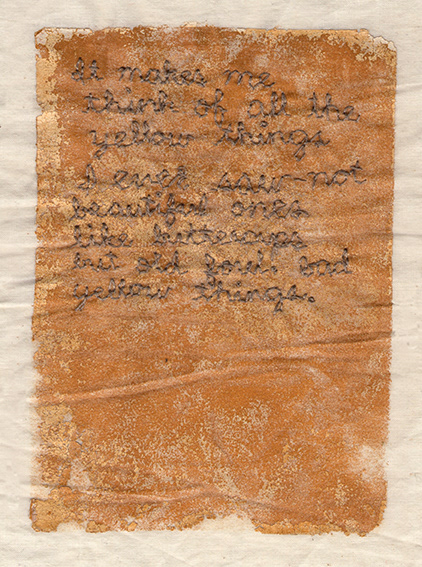 It makes me
think of all the
yellow things
I ever saw-not
beautiful ones
like buttercups
but old foul, bad
yellow things.